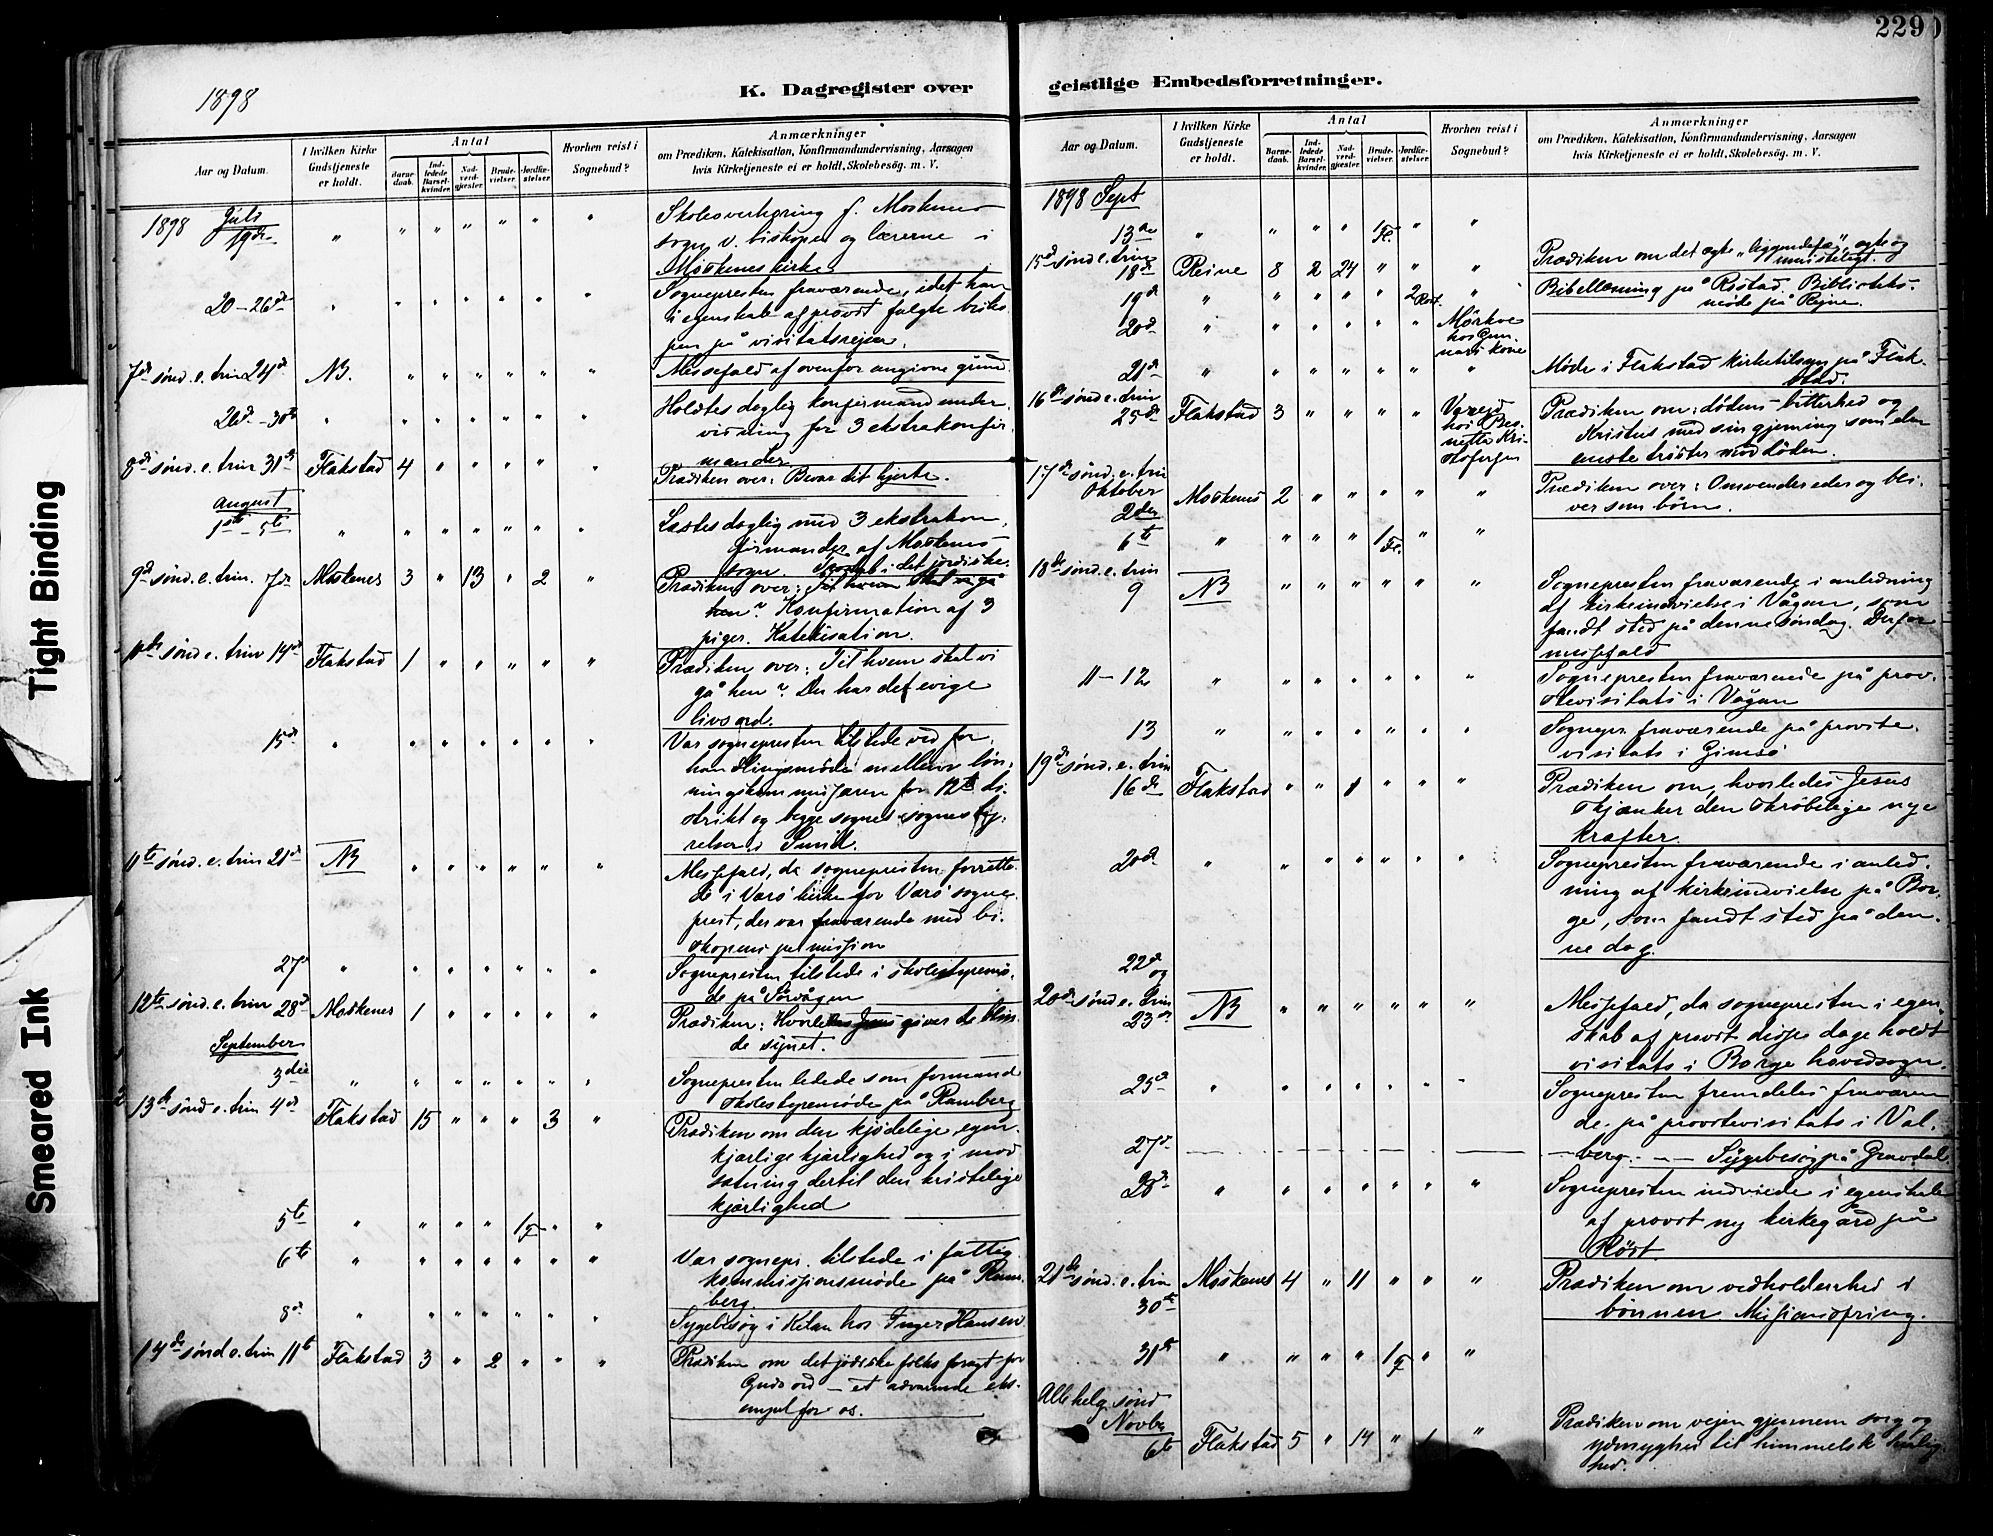 229
1898
K. Dagregister over
Aar og Datum.
I hvilken Kirke Gudstjeneste er holdt.
Antal
Barnedaab.
Indledede Barselkvinder.
Nadverdgjester.
Brudevielser.
Jordfæstelser.
Hvorhen reist i Sognebud?
Anmærkninger
om Prædiken, Katekisation, Konfirmandundervisning, Aarsagen
hvis Kirketjeneste ei er holdt, Skolebesøg. m. V.
1898 Juli
19de " " " " " " " Skolesverhøring f. Moskenes
sogn v. biskopen og lærerne i
Moskenes kirke
20-26de " " " " " " " Sognepresten fraværende, idet han
i egenskab af provst fulgte biskopen
på visitatsrejsen.
7de sønd. e. trin 24de NB. " " " " " " Messefald af ovenfor angivne grund
26de-30te " " " " " " " Holdtes daglig konfirmandunder
visning for 3 ekstrakonfir
mander
8de sønd. e. trin 31te Flakstad 4 " " " " " Prædiken over: Bevar dit hjerte.
August
1ste-5te " " " " " " " Læstes daglig med 3 ekstrakon
firmander af Moskenes
sogn.
9de sønd. e. trin. 7de Moskenes 3 " 13 " 2 " Prædiken over:
Konfirmation af 3
piger. Katekisation.
10de sønd e. trin 14de Flakstad 1 " " " " " Prædiken over: Til hvem skal vi
gå hen? Du har det evige
livs ord.
15de " " " " " " " Var sognepresten tilstede ved for
handlingsmøde mellem løn
ningskommissæren for 12te di
strikt og begge sognes sognesty
relser i Sund.
11te sønd. e. trin 21de NB " " " " " " Messefald, da sognepresten forrette
de i Værø kirke for Værø sogne
prest, der var fraværende med bi
skopens permission
27de " " " " " " " Sognepresten tilstede i skolestyremø
de på Sørvågen
12te sønd. e. trin 28de Moskenes 1 " " " " " Prædiken: Hvorledes Jesus giver de blin
de synet.
September
3die " " " " " " " Sognepresten ledede som formand
skolestyremøde på Ramberg
13de sønd e. trin 4de Flakstad 15 " " " 3 " Prædiken om den kjødelige egen
kjærlige kjærlighed og i mod
sætning dertil den kristelige
kjærlighed
5te " " " " 1 " "
6te " " " " " " " Var sognepr. tilstede i fattig
kommissjonsmøde på Ram
berg.
8de " " " " " " " Sygebesøg i Kilan hos Inger Hansen
14de sønd e. trin 11te Flakstad 3 " 2 " " " Prædiken om det jødiske folks foragt for
Guds ord – et advarende eks
empel for os.
geistlige Embedsforretninger.
Aar og Datum.
I hvilken Kirke Gudstjeneste er holdt.
Antal
Barnedaab.
Indledede Barselkvinder.
Nadverdgjester.
Brudevielser.
Jordfæstelser.
Hvorhen reist i Sognebud?
Anmærkninger
om Prædiken, Katekisation, Konfirmandundervisning, Aarsagen
hvis Kirketjeneste ei er holdt, Skolebesøg. m. V.
1898 Sept
13de " " " " 1 Fl. " "
15de sønd e. trin
18de Reine 8 2 24 " " " Prædiken om det ægte
19de " " " " " 2 " Bibellæsning på Ristad. Biblioteks-
møde på Rejne
20de " " " " " " Mørkve
hos Gun-
nars kone
21de " " " " " " " Møde i Flakstad kirketilsyn på Flak-
stad.
16de sønd e. trin
25de Flakstad 3 " " " " Prædiken om: dødens bitterhed og
Kristus med sin gjerning som den
eneste trøster mod døden.
17de sønd. e. trin
Oktober
2den Moskenes 2 " " " " " Prædiken over: Omvender eder og bli
ver som børn.
6te " " " " 1 Fl. " "
18de sønd e. trin
9 NB " " " " " " Sognepresten fraværende i anledning
af kirkeindvielse i Vågan, som
fandt sted på denne søndag. Derfor
messefald
11-12 " " " " " " " Sognepresten fraværende på prov
stevisitats i Vågan
13 " " " " " " " Sognepr. fraværende på provste
visitats i Gimsø
19de sønd. e. trin
16de Flakstad " " 1 " " " Prædiken om, hvorledes Jesus
skjænker den skrøbelige nye
kræfter.
20de " " " " " " " Sognepresten fraværende i anled
ning af kirkeindvielse på Bor
ge, som fandt sted på den
ne dag.
22de
og
20de sønd e. trin
23de NB " " " " " " Messefald, da sognepresten i egen
skab af provst disse dage holdt
visitats i Borge hovedsogn.
25de " " " " " " " Sognepresten fremdeles fraværen
de på provstevisitats i Val
berg.
27de — Sygebesøg på Gravdal
28de " " " " " " " Sognepresten indviede i egenskab
af provst ny kirkegård på
Røst
21de sønd. e. trin
30te Moskenes 4 " 11 " " " Prædiken om vedholdenhed i
bønnen. Missionsofring.
31te " " " " 1 " "
Alle helg. sønd
Novbr
6te Flakstad 5 " 14 " 1 " Prædiken om vejen gjennem sorg og
ydmyghed til himmelsk herlig
hed.
Tight Binding
Smeared Ink